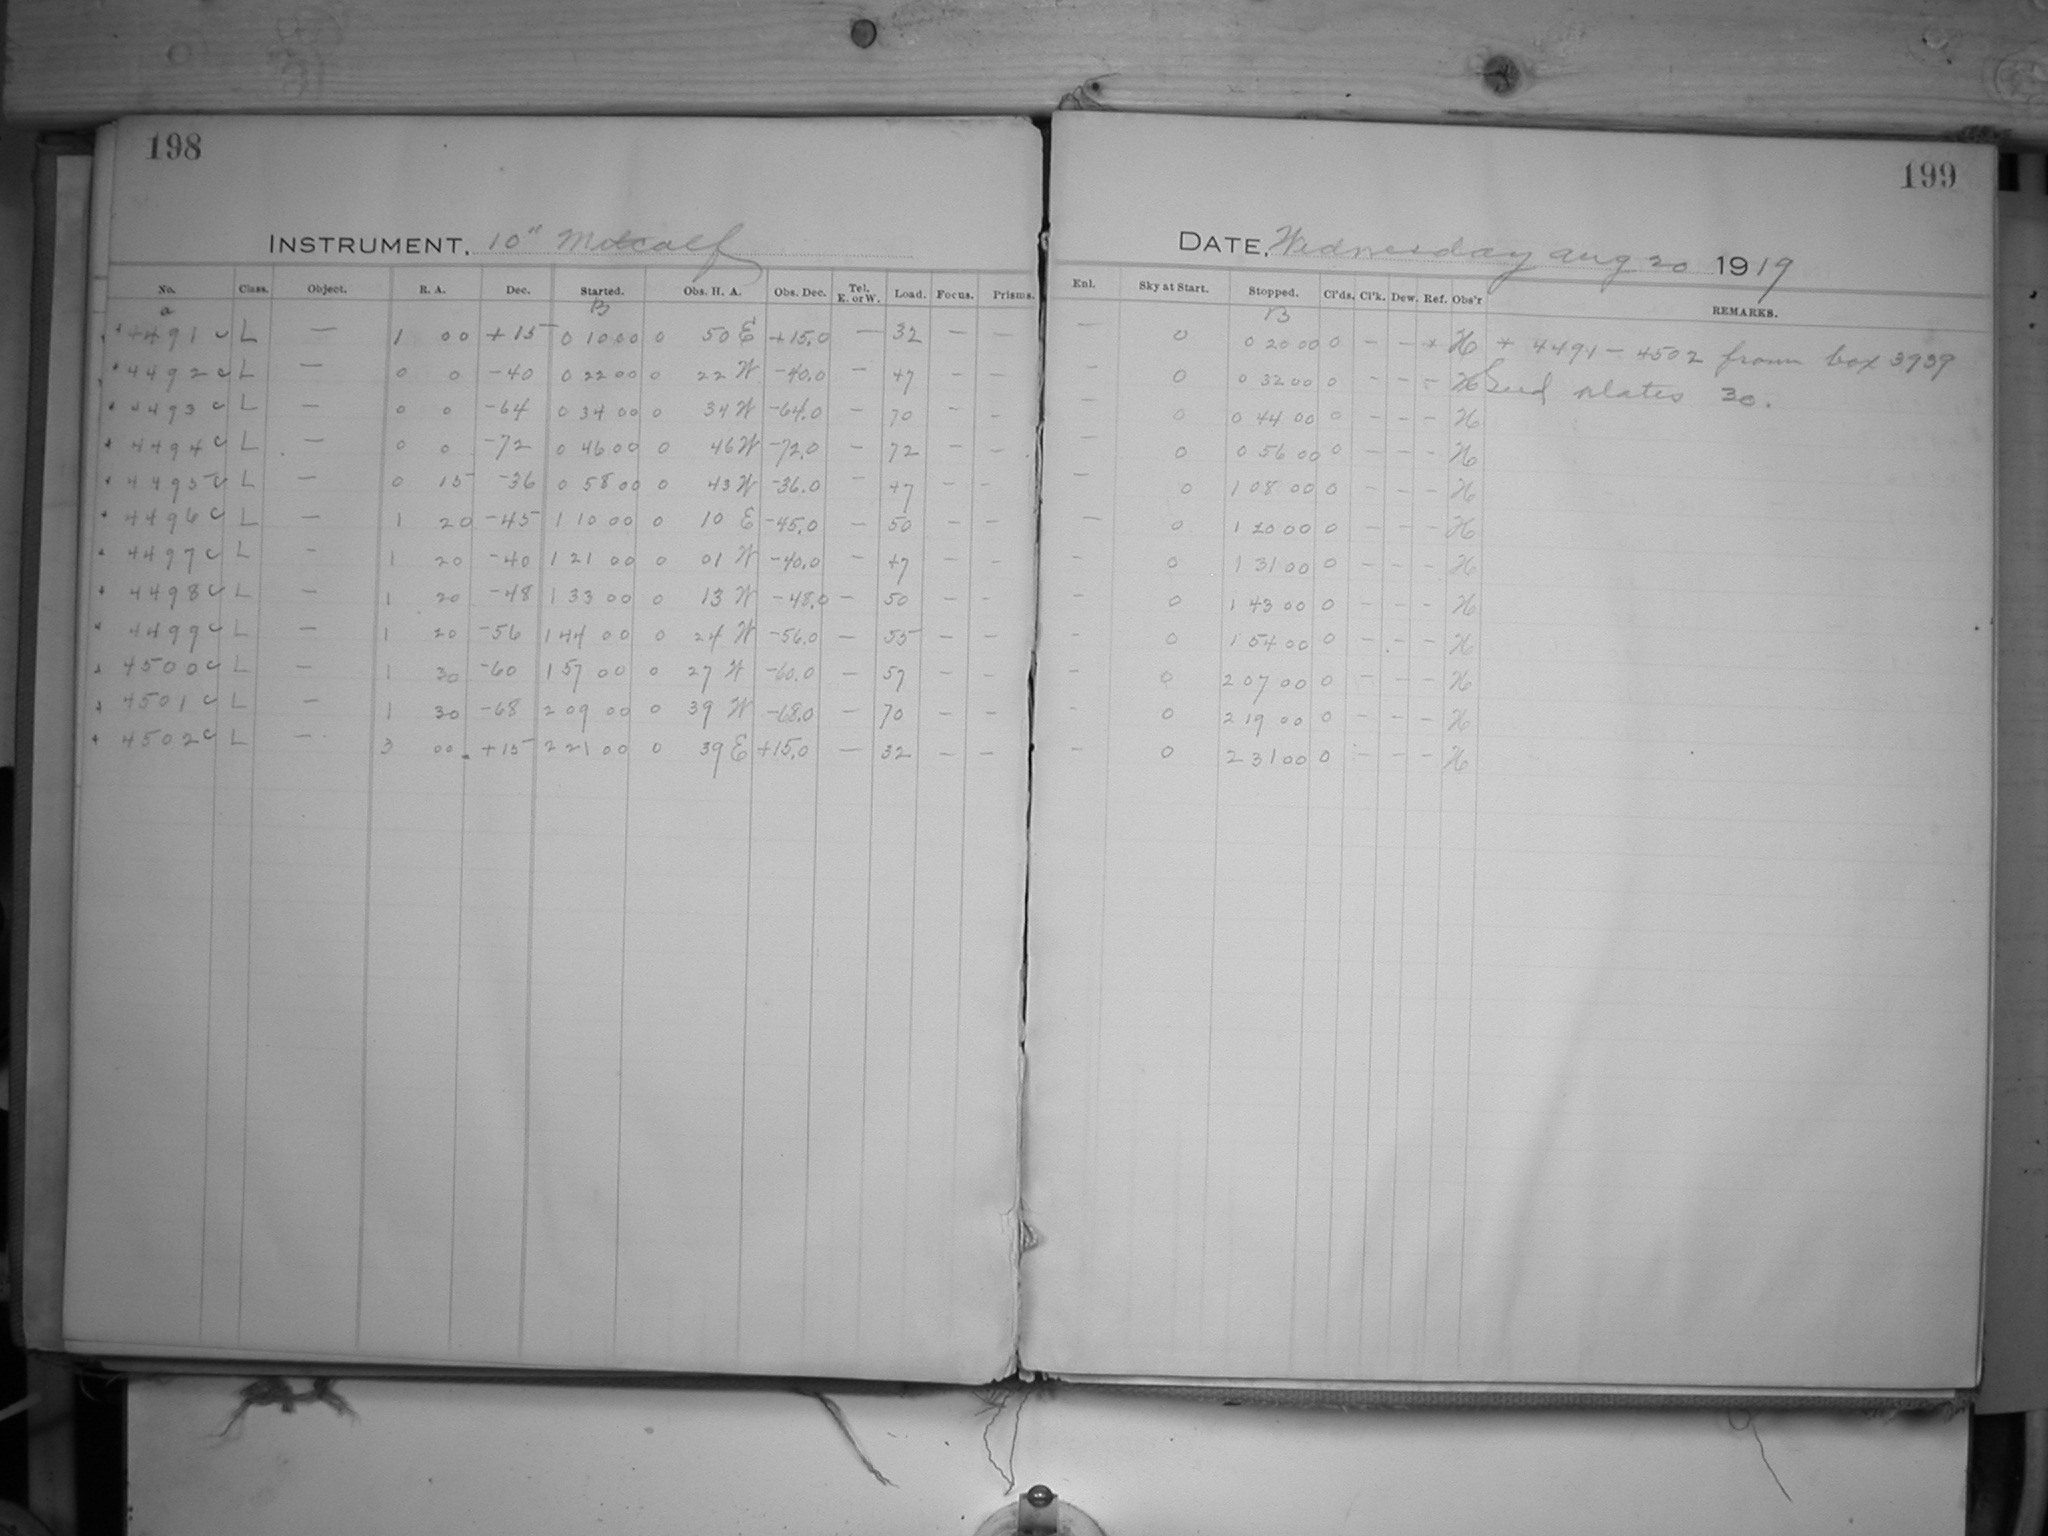 198
199
INSTRUMENT. 10" Metcalf
DATE, Wednesday Aug 20 1919
No. Class. Object. R. A. Dec. Started. Obs. H. A. Obs. Dec. Tel. E. or W. Load. Focus. Prisms. Enl. Sky at Start. Stopped. Cl'ds. Cl'k. Dew. Ref. Obs'r REMARKS.
a B B
* 4491 c L — 1 00 +15 0 10 00 0 50 E +15.0 — 32 — — — 0 0 20 00 0 - - * H * 4491 - 4502 from box 3939
* 4492 c L — 0 0 -40 0 22 00 0 22 W -40.0 — 47 — — — 0 0 32 00 0 - - - H Seed plates 30.
* 4493 c L — 0 0 -64 0 34 00 0 34 W -64.0 — 70 — — — 0 0 44 00 0 - - - H
* 4494 c L — 0 0 -72 0 46 00 0 46 W -72.0 — 72 — — — 0 0 56 00 0 - - - H
* 4495 c L — 0 15 -36 0 58 00 0 43 W -36.0 — 47 — — — 0 1 08 00 0 - - - H
* 4496 c L — 1 20 -45 1 10 00 0 10 E -45.0 — 50 — — — 0 1 20 00 0 - - - H
* 4497 c L — 1 20 -40 1 21 00 0 01 W -40.0 — 47 — — — 0 1 31 00 0 - - - H
* 4498 c L — 1 20 -48 1 33 00 0 13 W -48.0 — 50 — — — 0 1 43 00 0 - - - H
* 4499 c L — 1 20 -56 1 44 00 0 24 W -56.0 — 55 — — — 0 1 54 00 0 - - - H
* 4500 c L — 1 30 -60 1 57 00 0 27 W -60.0 — 57 — — — 0 2 07 00 0 - - - H
* 4501 c L — 1 30 -68 2 09 00 0 39 W -68.0 — 70 — — — 0 2 19 00 0 - - - H
* 4502 c L — 3 00 +15 2 21 00 0 39 E +15.0 — 32 — — — 0 2 31 00 0 - - - H